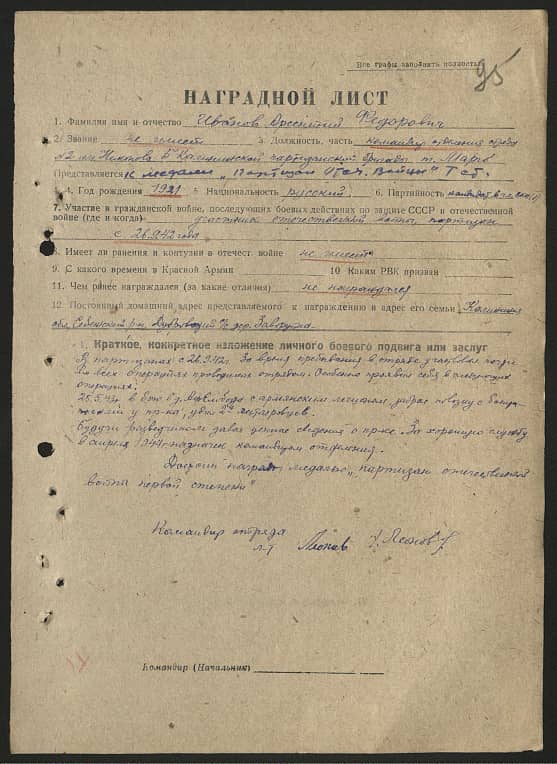 Все графы заполнять полностью
95
НАГРАДНОЙ ЛИСТ
1. Фамилия имя и отчество Иванов Арсентий Федорович
2. Звание не имеет 3. Должность, часть командир отделения отряда
№2 им. Никонова 5й Калининской партизанской бригады т. Марго
Представляется к медали "Партизан Отеч. Войны" I ст.
4. Год рождения 1921 5 Национальность русский 6. Партийность кандидат в чл.
7. Участие в гражданской войне, последующих боевых действиях по защите СССР и отечественной
войне (где и когда) участник отечественной войны партизан
с 26.9.42 года
8. Имеет ли ранения и контузии в отечест. войне не имеет
9. С какого времени в Красной Армии 10 Каким РВК призван
11. Чем ранее награждался (за какие отличия) не награждался
12. Постоянный домашний адрес представляемого к награждению и адрес его семьи Калининская
обл. Себежский р-н с/с дер.
1. Краткое, конкретное изложение личного боевого подвига или заслуг
В партизанах с 26.9.42г. За время пребывания в отряде участвовал почти
во всех операциях проводимых отрядом. Особенно проявил себя в следующих
операциях:
25.5.43г. в бою у д. с армянским легионом, забрал повозку с
у пр-ка, убил 2х
Будучи разведчиком давал ценные сведения о пр-ке. За хорошую службу
в апреле 1944г. назначен командиром отделения.
Достоин наград. медалью "партизан отечественной
войны первой степени"
Командир отряда
л-т Леонов
Командир (Начальник)